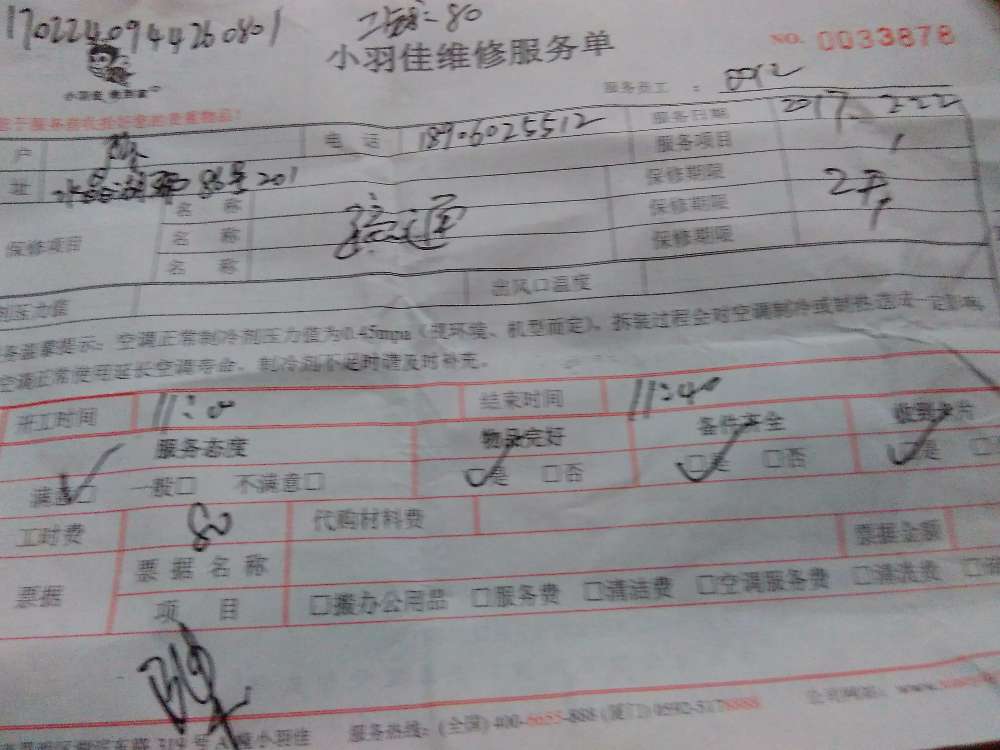 1702240944260801
80
小羽佳维修服务单
NO. 0033878
小羽佳
服务员工 :
户
电 话 18906025512 服务日期 2017. 2.22
服务项目
址 86号201 保修期限
保修项目 名 称 疏通 保修期限 2月
名 称 保修期限
名 称
剂压力值 出风口温度
务温馨提示：空调正常制冷剂压力值为0.45mpa（视环境、机型而定）、拆装过程会对空调制冷或制热造成一定影响,
空调正常使用延长空调寿命、制冷剂不足时请及时补充。
开工时间 11:0 结束时间 11:40
服务态度 物品完好 备件齐全 收到卡片
满意□ 一般□ 不满意□ □是 □否 □是 □否 □是
工时费 80 代购材料费
票据 票据名称 票据金额
项 目 □搬办公用品 □服务费 □清洁费 □空调服务费 □清洗费
319号 小羽佳 服务热线：(全国) 400-6655-888 (厦门) 0592-5178888 公司网站：www.